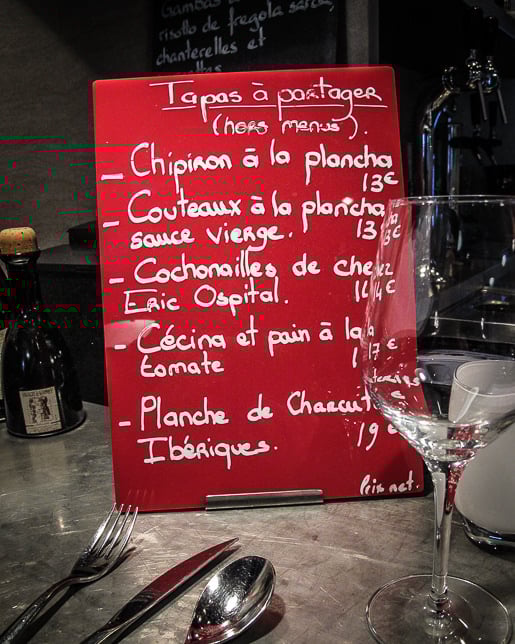 Gambas à
risotto de fregola sarde,
chanterelles et
Tapas à partager
(hors menus).
- Chipiron à la plancha
13€
- Couteaux à la plancha,
sauce vierge. 13€
- Cochonailles de chez
Eric Ospital. 14€
- Cécina et pain à la
tomate 17€
- Planche de Charcuteries
Ibériques. 19€
Prix net.